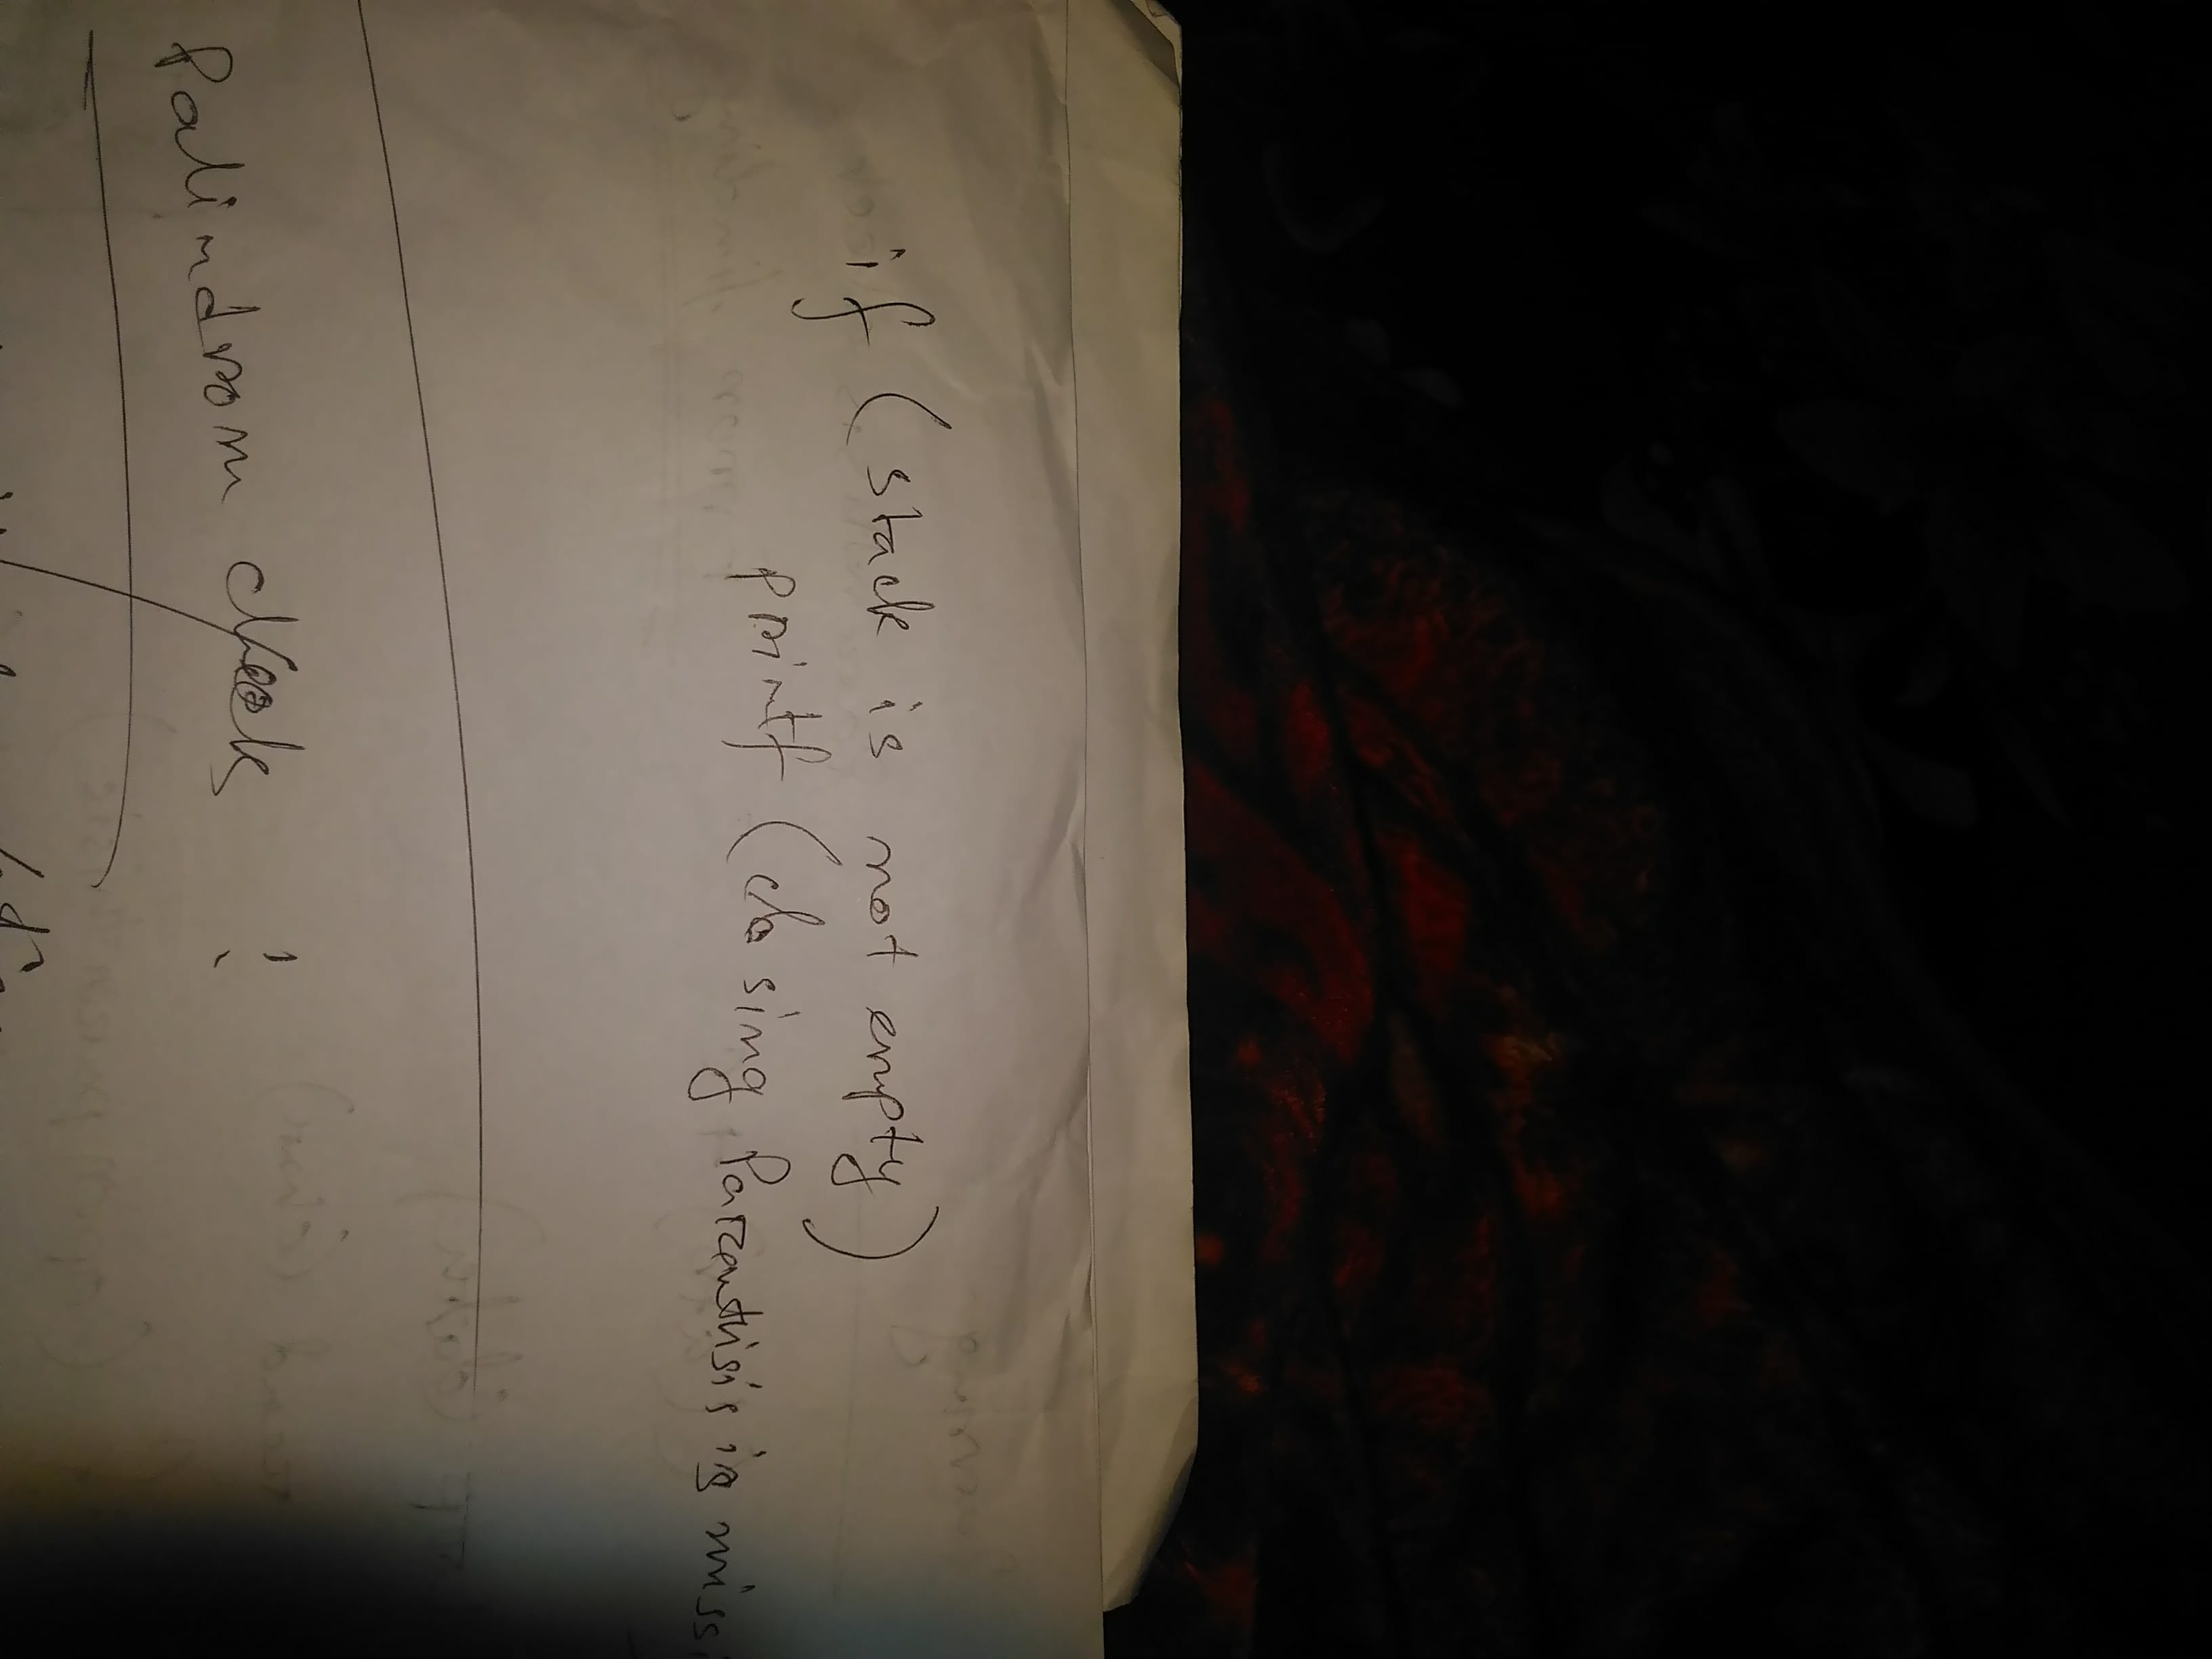 if (stack is not empty)
printf (closing Parenthisis is miss
Palindrom check :